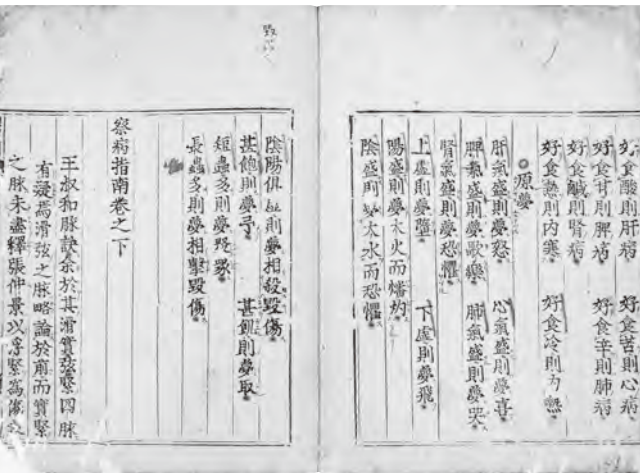 好食酸則肝病 好食苦則心病
好食甘則脾病 好食辛則肺病
好食鹹則腎病
好食熱則内寒 好食冷則内熱
原夢
肝氣盛則夢怒 心氣盛則夢喜
脾氣盛則夢歌樂 肺氣盛則夢哭
腎氣盛則夢恐懼
上虛則夢墮 下虛則夢飛
陽盛則夢大火而燔灼
陰盛則夢大水而恐懼
陰陽俱盛則夢相殺毀傷
甚飽則夢予 甚飢則夢取
短蟲多則夢聚眾
長蟲多則夢相擊毀傷
察病指南卷之下
王叔和脉訣余於其滑實弦緊四脉
有疑焉滑弦之脉略論於前而實緊
之脉未盡釋張仲景以浮緊為傷